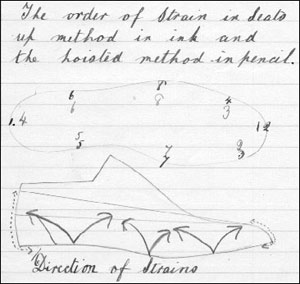 The order of Strain in Seats
up method in ink and
the hoisted method in pencil.
8
8
6
6
4
3
1. 4
1 2
5
5
7
7
Direction of Strains